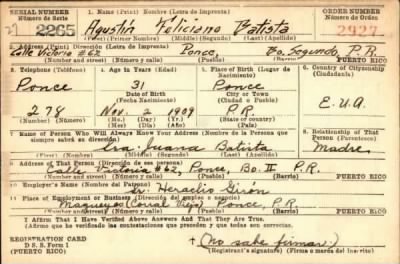 SERIAL NUMBER
1. Name (Print) Nombre (Letra de Imprenta)
ORDER NUMBER
Número de Serie
Número de Orden
2265
Agustín Feliciano Batista
2927
(First) (Primer Nombre) (Middle) (Segundo) (Last) (Apellido)
2 Address (Print) Dirección (Letra de Imprenta)
Calle Victoria #62 Ponce, Bo. Segundo, P.R.
(Number and street) (Número y calle) (Town) (Pueblo) (Barrio) PUERTO RICO
3 Telephone (Teléfono)
4 Age in Years (Edad)
5 Place of Birth (Lugar de Nacimiento)
6 Country of Citizenship (Ciudadanía)
Ponce
31
Ponce
Date of Birth
(Fecha Nacimiento)
City or Town
(Ciudad o Pueblo)
E.U.A.
278
Nov. 2 1909
P.R.
(Number) (Número)
(Mo.) (Mes) (Day) (Día) (Yr.) (Año)
(State or country)
(País)
7 Name of Person Who Will Always Know Your Address (Nombre de la Persona que siempre sabrá su dirección)
8 Relationship of That Person (Parentesco)
Sra. Juana Batista
Madre
(First) (Primer Nombre) (Middle) (Segundo) (Last) (Apellido)
9 Address of That Person (Dirección de esa persona)
Calle Victoria #62, Ponce, Bo. II P.R.
(Number and street) (Número y calle) (Town) (Pueblo) (Barrio) PUERTO RICO
10 Employer's Name (Nombre del Patrono)
Sr. Heraclio Girón
11 Place of Employment or Business (Dirección del empleo o negocio)
Magueyes (Corral Viejo), Ponce, P.R.
(Number and street) (Número y calle) (Town) (Pueblo) (Barrio) PUERTO RICO
I Affirm That I Have Verified Above Answers and That They Are True.
(Afirmo que he verificado las contestaciones que preceden y que todas son correctas.
REGISTRATION CARD
D. S. S. Form 1
(PUERTO RICO)
(No sabe firmar)
(Registrant's signature) (Firma o marca del Inscrito)